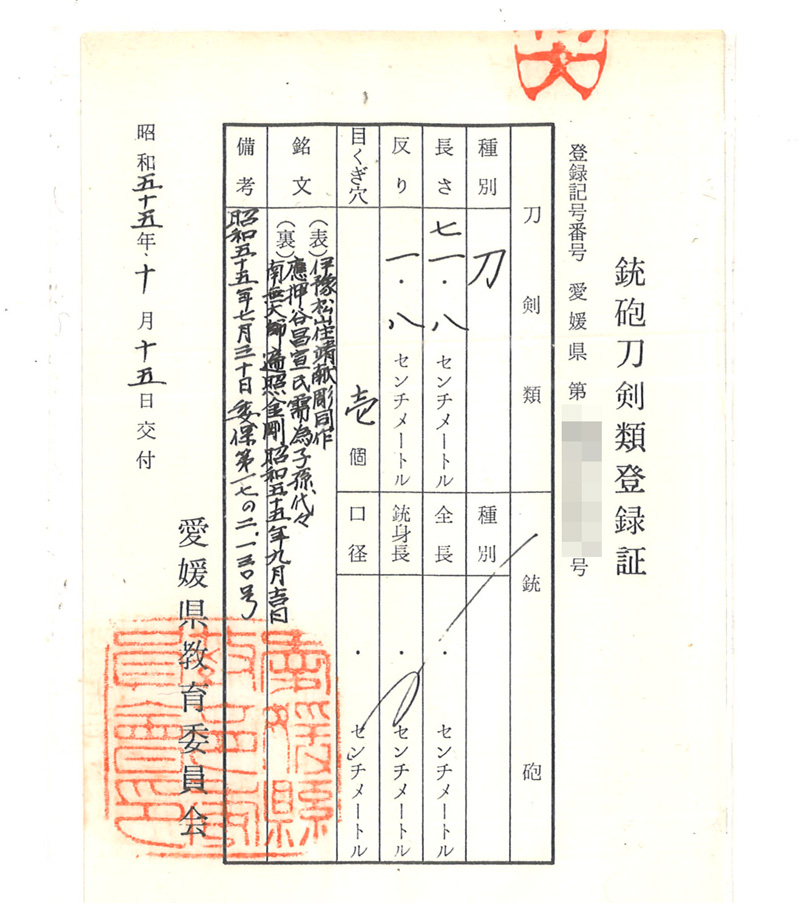 銃砲刀剣類登録証
登録記号番号 愛媛県 第 号
刀剣類
種別 刀
長さ 七一・八 センチメートル
反り 一・八 センチメートル
目くぎ穴 壱個
銘文
(表)伊豫松山住靖献彫同作
應押谷昌宣氏需為子孫代々
(裏)南無大師遍照金剛昭和五十五年九月吉日
備考 昭和五十五年七月三十日 委保第一七の二、一三〇号
銃砲
種別
全長 ・ センチメートル
銃身長 ・ センチメートル
口径 ・ センチメートル
昭和五十五年十月十五日交付
愛媛県教育委員会